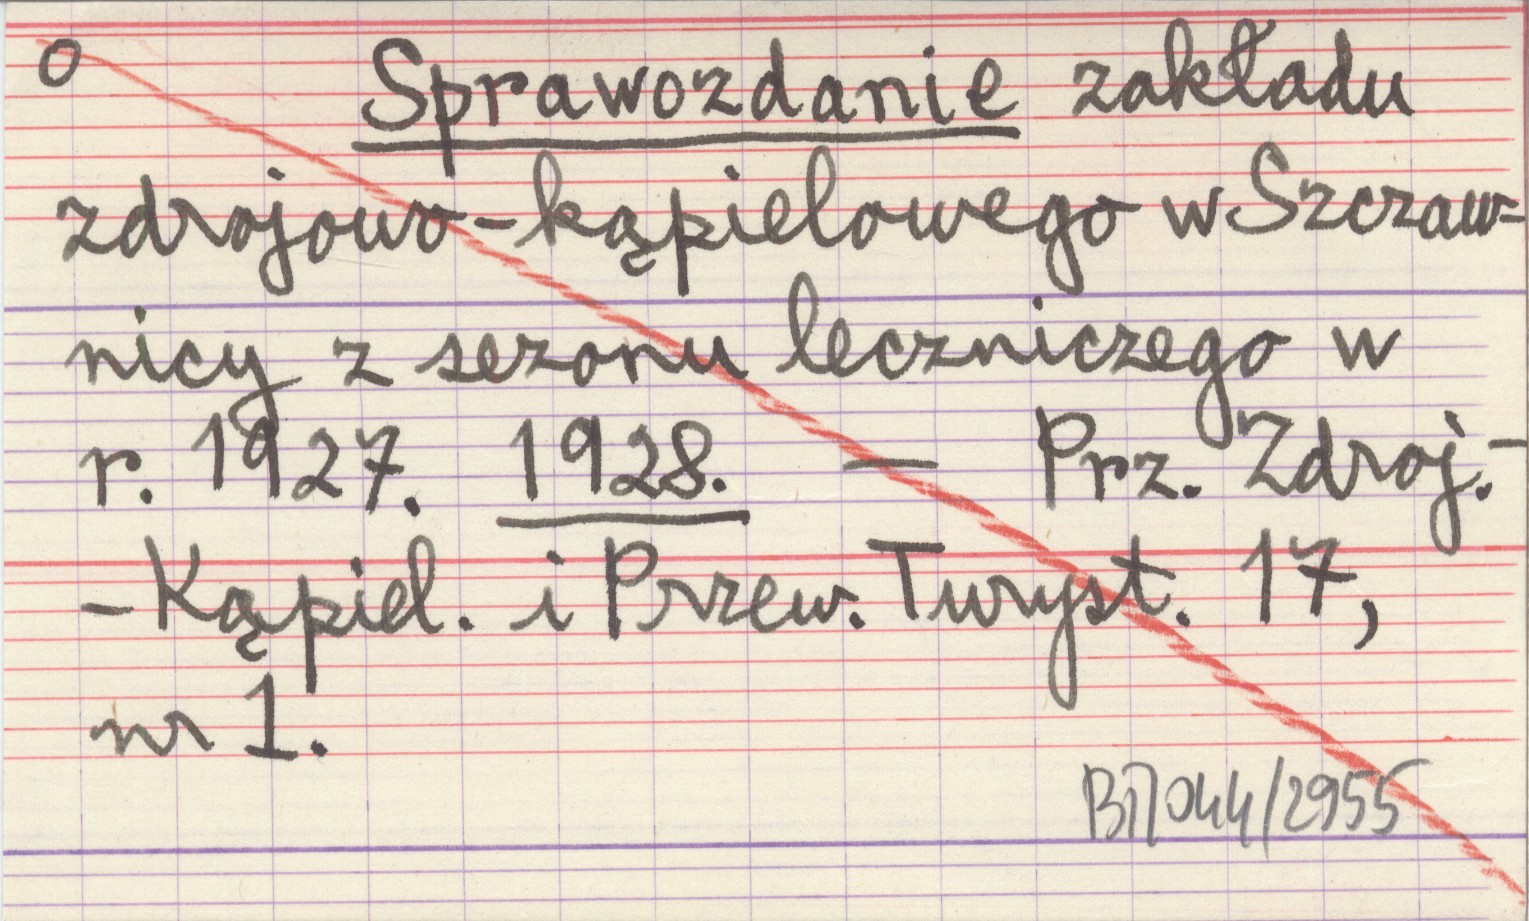 o Sprawozdanie zakładu
zdrojowo-kąpielowego w Szczaw=
nicy z sezonu leczniczego w
r. 1927. 1928. — Prz. Zdroj.-
-Kąpiel. i Przew. Turyst. 17,
nr 1.
/2955